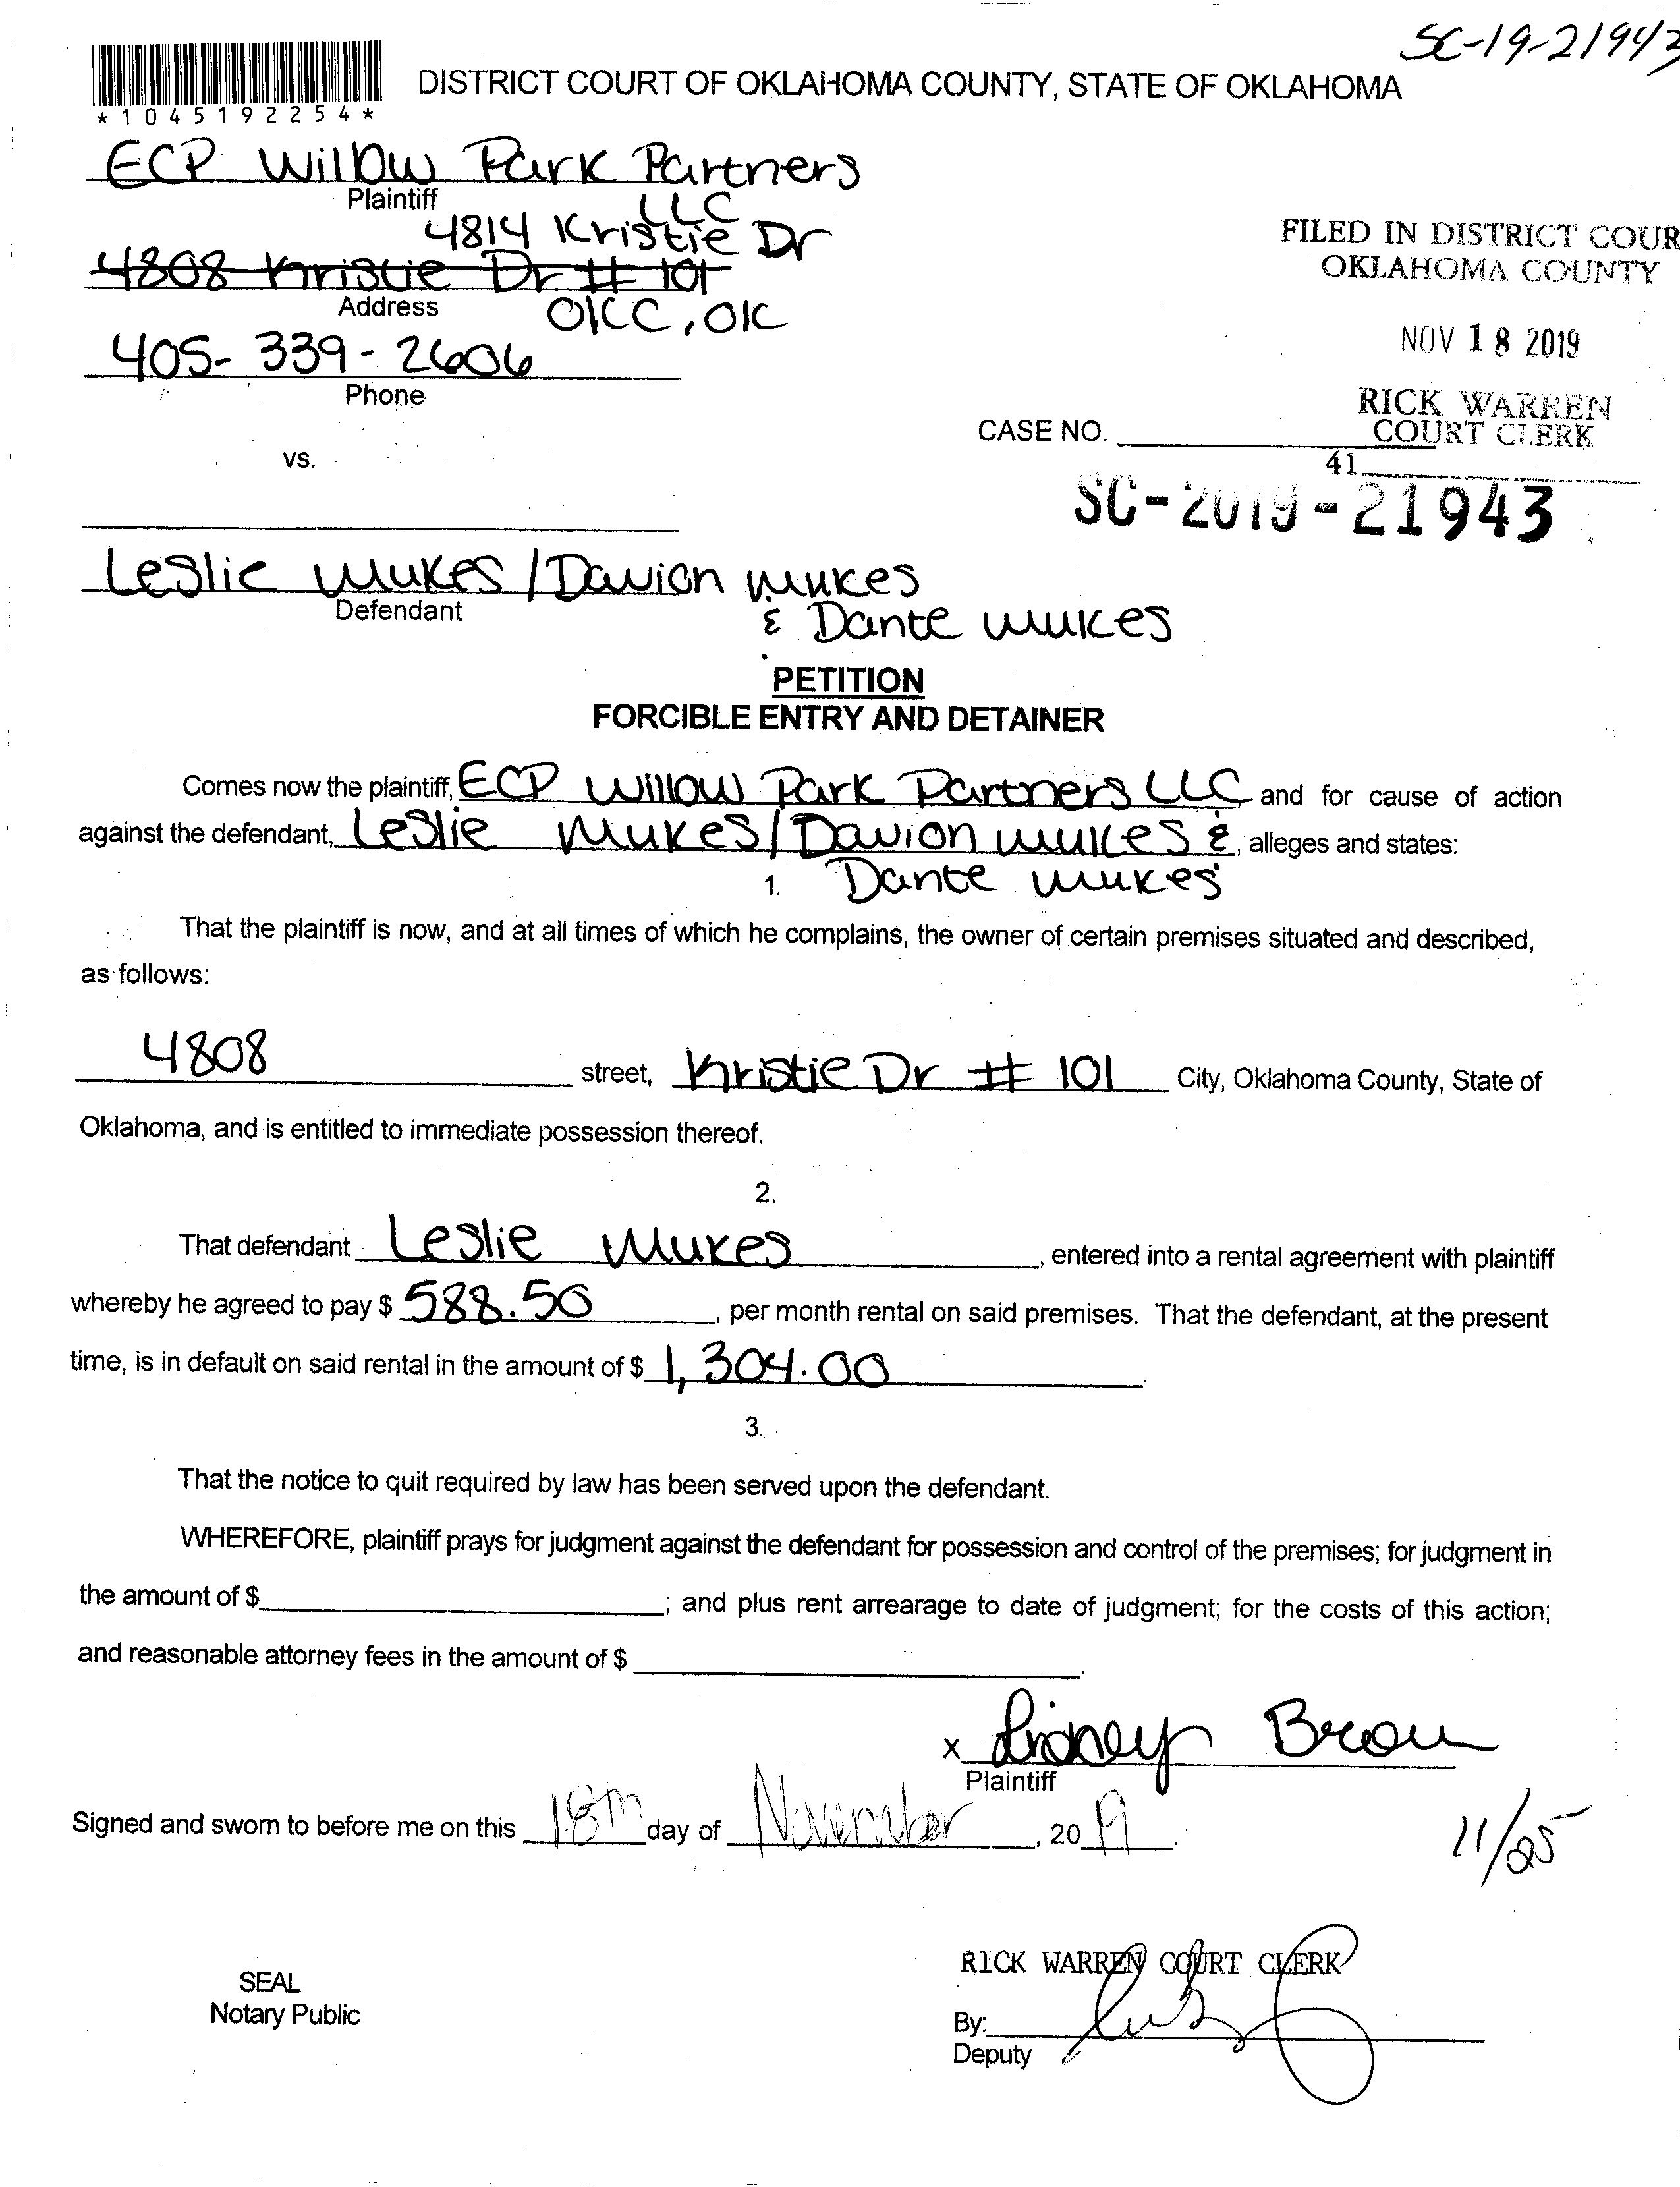 SC-19-21943
DISTRICT COURT OF OKLAHOMA COUNTY, STATE OF OKLAHOMA
*1045192254*
ECP Willow Park Partners
LLC
Plaintiff
4814 Kristie Dr
4808 Kristie Dr # 101
Address
OKC, OK
405-339-2606
Phone
FILED IN DISTRICT COUR
OKLAHOMA COUNTY
NOV 18 2019
RICK WARREN
COURT CLERK
CASE NO.
41
vs.
SC-2019-21943
Leslie Mukes / Davion Mukes
Defendant
& Dante Mukes
PETITION
FORCIBLE ENTRY AND DETAINER
Comes now the plaintiff, ECP Willow Park Partners LLC and for cause of action
against the defendant, Leslie Mukes / Davion Mukes &, alleges and states:
1. Dante Mukes
That the plaintiff is now, and at all times of which he complains, the owner of certain premises situated and described,
as follows:
4808 street, Kristie Dr # 101 City, Oklahoma County, State of
Oklahoma, and is entitled to immediate possession thereof.
2.
That defendant Leslie Mukes, entered into a rental agreement with plaintiff
whereby he agreed to pay $ 588.50, per month rental on said premises. That the defendant, at the present
time, is in default on said rental in the amount of $ 1,304.00.
3.
That the notice to quit required by law has been served upon the defendant.
WHEREFORE, plaintiff prays for judgment against the defendant for possession and control of the premises; for judgment in
the amount of $ ; and plus rent arrearage to date of judgment; for the costs of this action;
and reasonable attorney fees in the amount of $ .
x
Plaintiff
Signed and sworn to before me on this 18th day of November, 2019.
11/25
RICK WARREN COURT CLERK
SEAL
Notary Public
By:
Deputy